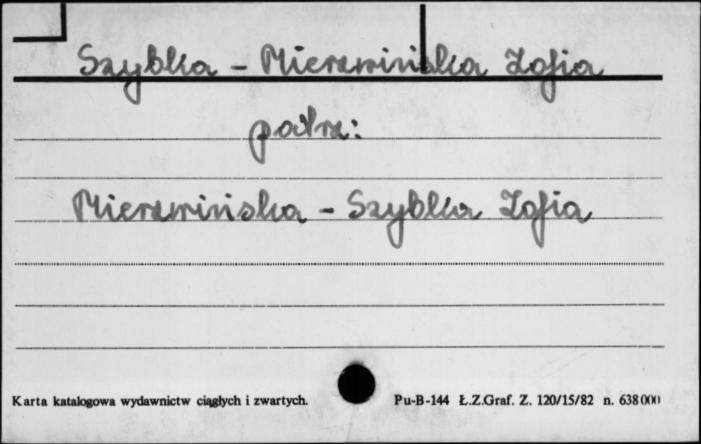 Szybka - Mierzwińska Zofia
patrz:
Mierzwińska - Szybka Zofia
Karta katalogowa wydawnictw ciągłych i zwartych. Pu-B-144 Ł.Z.Graf. Z. 120/15/82 n. 638000